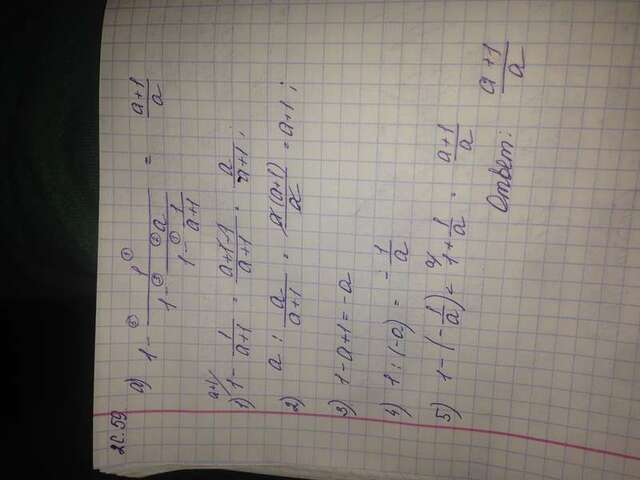 2С.59.
а) 1 - 1 / (1 - a / (1 - 1/(a+1))) = (a+1)/a
1) 1 - 1/(a+1) = (a+1-1)/(a+1) = a/(a+1);
2) a : a/(a+1) = a(a+1)/a = a+1;
3) 1-a+1=-a
4) 1 : (-a) = - 1/a
5) 1 - (- 1/a) = 1 + 1/a = (a+1)/a
Ответ: (a+1)/a